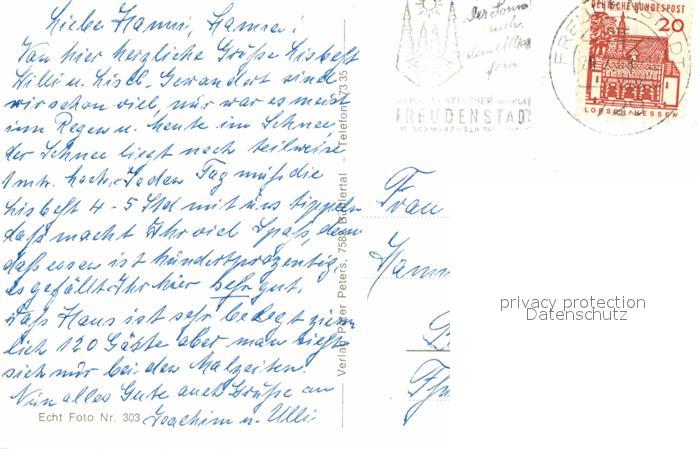 Liebe Hanni, Hanna!
Von hier herzliche Grüße Lisbeth
Willi u. Lisl. Gewandert sind
wir schon viel, nur war es meist
im Regen u. heute im Schnee,
der Schnee liegt noch teilweise
1 mtr. hoch. Jeden Tag muß die
Lisbeth 4 - 5 Std mit uns tippeln
daß macht Ihr viel Spaß, denn
daß essen ist hundertprozentig,
es gefällt Ihr hier sehr gut.
Daß Haus ist sehr belegt ziem
lich 120 Gäste aber man sieht
sich nur bei den Malzeiten.
Nun alles Gute auch Grüße an
Joachim u. Ulli
Echt Foto Nr. 303
Verlag Peter Peters, 758 Bühlertal - Telefon 73 35
der Sonne
FREUDENSTADT
IM SCHWARZWALD
FREUDENSTADT
DEUTSCHE BUNDESPOST
20
LORSCH/HESSEN
Frau
Hann
privacy protection
Datenschutz